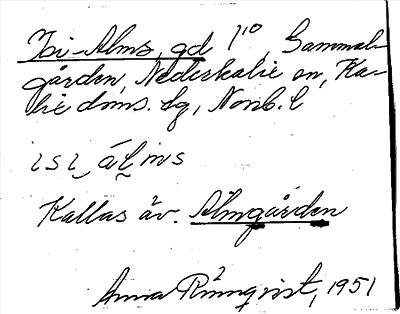 Isi-Alms, gd 1/10, Gammel-
gården, Nederkalix sn, Ka-
lix doms. lg, Norrb. l
ısı̮ álı̮ms
Kallas äv. Älmgården
Anna Rönnqvist, 1951